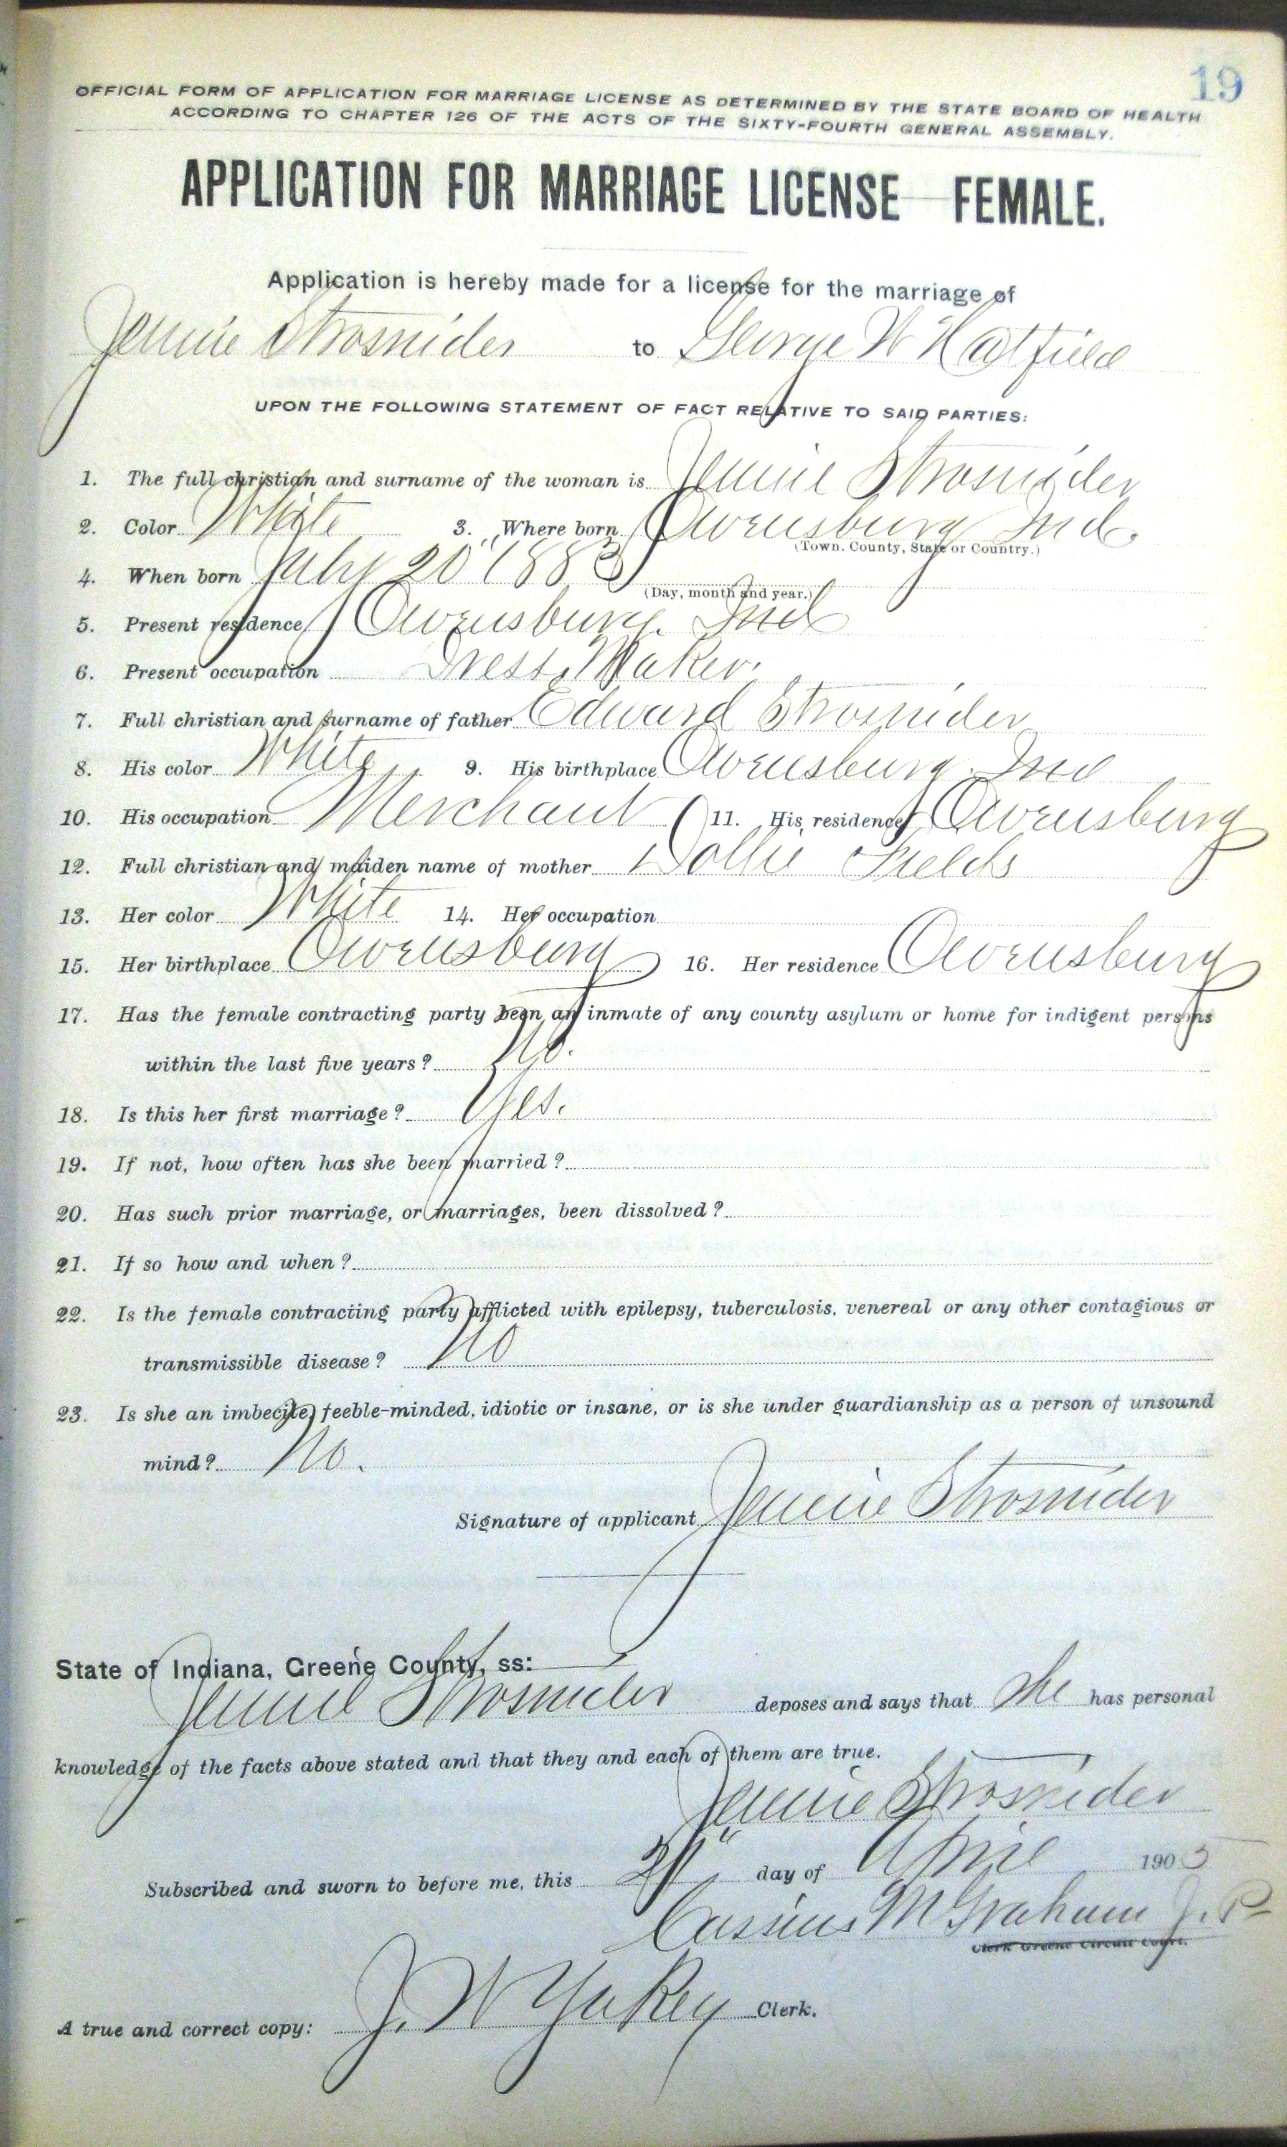 19
OFFICIAL FORM OF APPLICATION FOR MARRIAGE LICENSE AS DETERMINED BY THE STATE BOARD OF HEALTH
ACCORDING TO CHAPTER 126 OF THE ACTS OF THE SIXTY-FOURTH GENERAL ASSEMBLY.
APPLICATION FOR MARRIAGE LICENSE FEMALE.
Application is hereby made for a license for the marriage of
Jennie Strosnider to George W Hatfield
UPON THE FOLLOWING STATEMENT OF FACT RELATIVE TO SAID PARTIES:
1. The full christian and surname of the woman is Jennie Strosnider
2. Color White 3. Where born Owensburg Ind.
(Town. County, State or Country.)
4. When born July 20" 1883
(Day, month and year.)
5. Present residence Owensburg. Ind
6. Present occupation Dress Maker.
7. Full christian and surname of father Edward Strosnider
8. His color White 9. His birthplace Owensburg. Ind
10. His occupation Merchant 11. His residence Owensburg
12. Full christian and maiden name of mother Dollie Fields
13. Her color White 14. Her occupation
15. Her birthplace Owensburg 16. Her residence Owensburg
17. Has the female contracting party been an inmate of any county asylum or home for indigent persons
within the last five years? No.
18. Is this her first marriage? Yes.
19. If not, how often has she been married?
20. Has such prior marriage, or marriages, been dissolved?
21. If so how and when?
22. Is the female contracting party afflicted with epilepsy, tuberculosis, venereal or any other contagious or
transmissible disease? No
23. Is she an imbecile, feeble-minded, idiotic or insane, or is she under guardianship as a person of unsound
mind? No.
Signature of applicant Jennie Strosnider
State of Indiana, Greene County, ss:
Jennie Strosnider deposes and says that She has personal
knowledge of the facts above stated and that they and each of them are true.
Jennie Strosnider
Subscribed and sworn to before me, this day of April 1905
Cassius M Graham J. P.
Clerk Greene Circuit Court.
A true and correct copy: J. W Yakey Clerk.